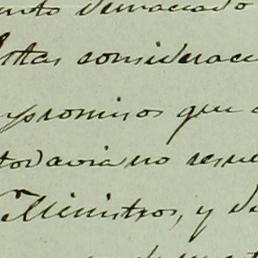 unto demaciado
Estas consideraci
mpromisos que
todavia no resue
Ministros, y de